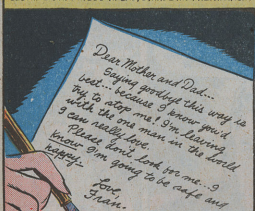 Dear Mother and Dad...
Saying goodbye this way is
best... because I know you'd
try to stop me! I'm leaving
with the one man in the world
I can really love.
Please don't look for me... I
know I'm going to be safe and
happy.
Love,
Fran.